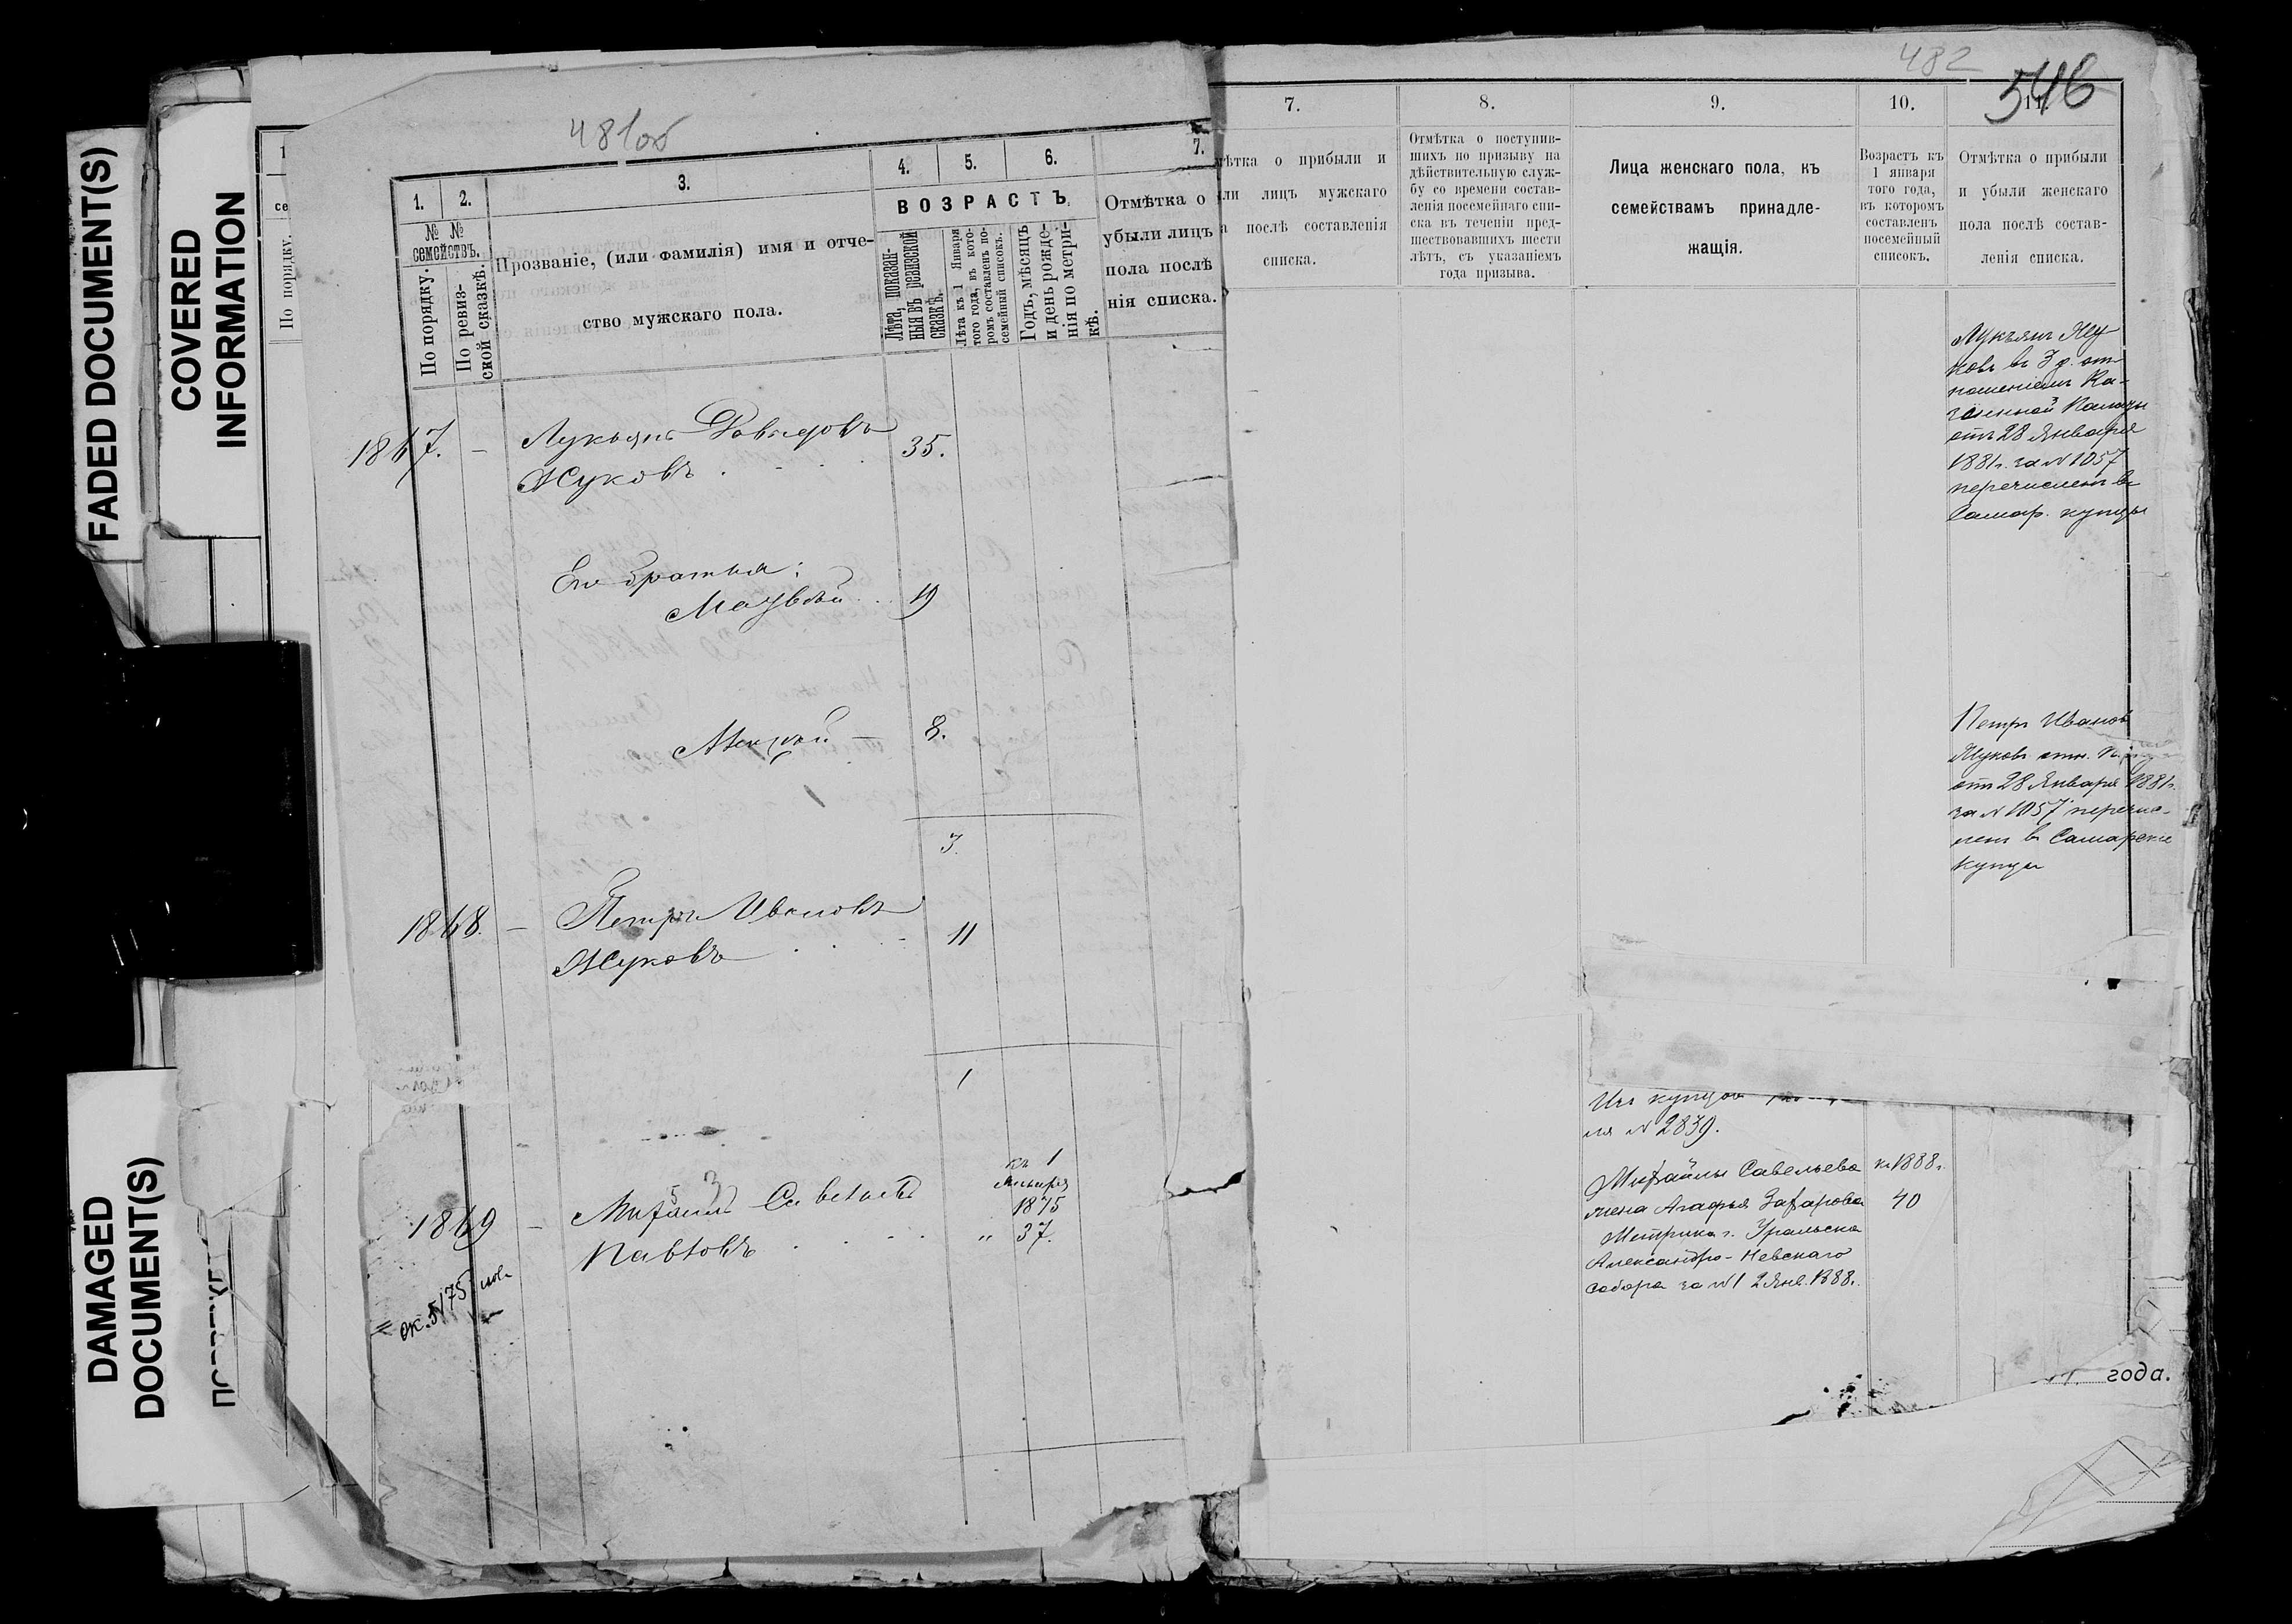 FADED DOCUMENT(S)
COVERED
INFORMATION
DAMAGED
DOCUMENT(S)
481об
1. 2. 3. 4. 5. 6. 7.
№ №
семействъ.
По порядку.
По ревиз-
ской сказкѣ.
Прозваніе, (или фамилія) имя и отче-
ство мужскаго пола.
ВОЗРАСТЪ
Лѣта, показан-
ныя въ ревизской
сказкѣ.
Лѣта къ 1 Января
того года, въ кото-
ромъ составленъ по-
семейный списокъ.
Годъ, мѣсяцъ
и день рожде-
нія по метри-
кѣ.
Отмѣтка о
убыли лицъ
пола послѣ
нія списка.
1867. — Лукьянъ Давыдовъ
Жуковъ 35.
Его братья:
19
— 8.
3.
1868. — Петръ Ивановъ
Жуковъ 11
1
къ 1
Января
1875
1869 — Михаилъ Савельевъ
Павловъ " 37.
ок. 5175
482
546
7. 8. 9. 10. 11.
ѣтка о прибыли и
ли лицъ мужскаго
а послѣ составленія
списка.
Отмѣтка о поступив-
шихъ по призыву на
дѣйствительную служ-
бу со времени состав-
ленія посемейнаго спи-
ска въ теченіи пред-
шествовавшихъ шести
лѣтъ, съ указаніемъ
года призыва.
Лица женскаго пола, къ
семействамъ принадле-
жащія.
Возрастъ къ
1 января
того года,
въ которомъ
составленъ
посемейный
списокъ.
Отмѣтка о прибыли
и убыли женскаго
пола послѣ состав-
ленія списка.
Лукьянъ Жу
ковъ въ 3 г. от
ношеніемъ Ка-
зенной Палаты
отъ 28 Января
1881г. за № 1057
перечисленъ въ
Самар. купцы
Петръ Иванов
Жуковъ отн.
отъ 28 Января 1881г.
за № 1057 перечис-
ленъ въ Самарскіе
купцы
Изъ купцов
ля № 2839.
Михайлы Савельева к 1888г.
жена Агафья Захарова 40
Метрика г. Уральска
Александро-Невскаго
собора за № 1 2 Янв. 1888г.
года.